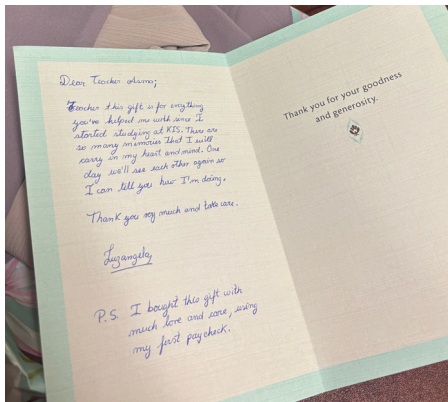 Dear Teacher Asma;
Teacher this gift is for everything
you've helped me with since I
started studying at KIS. There are
so many memories that I will
carry in my heart and mind. One
day we'll see each other again so
I can tell you how I'm doing.
Thank you very much and take care.
Luzangela
P.S. I bought this gift with
much love and care, using
my first paycheck.
Thank you for your goodness
and generosity.